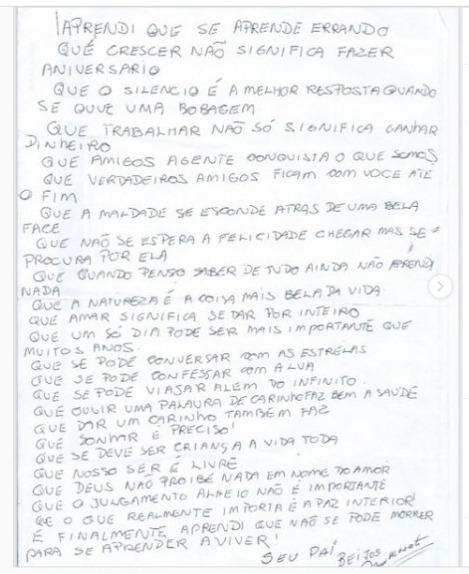 APRENDI QUE SE APRENDE ERRANDO
QUE CRESCER NÃO SIGNIFICA FAZER
ANIVERSARIO
QUE O SILENCIO É A MELHOR RESPOSTA QUANDO
SE OUVE UMA BOBAGEM
QUE TRABALHAR NÃO SÓ SIGNIFICA GANHAR
DINHEIRO
QUE AMIGOS AGENTE CONQUISTA O QUE SOMOS
QUE VERDADEIROS AMIGOS FICAM COM VOCE ATE
O FIM
QUE A MALDADE SE ESCONDE ATRAS DE UMA BELA
FACE
QUE NÃO SE ESPERA A FELICIDADE CHEGAR MAS SE
PROCURA POR ELA
QUE QUANDO PENSO SABER DE TUDO AINDA NÃO APRENDI
NADA
QUE A NATUREZA É A COISA MAIS BELA DA VIDA
QUE AMAR SIGNIFICA SE DAR POR INTEIRO
QUE UM SÓ DIA PODE SER MAIS IMPORTANTE QUE
MUITOS ANOS.
QUE SE PODE CONVERSAR COM AS ESTRELAS
QUE SE PODE CONFESSAR COM A LUA
QUE SE PODE VIAJAR ALEM DO INFINITO.
QUE OUVIR UMA PALAURA DE CARINHO FAZ BEM A SAUDE
QUE DAR UM CARINHO TAMBÉM FAZ
QUE SONHAR É PRECISO!
QUE SE DEVE SER CRIANÇA A VIDA TODA
QUE NOSSO SER É LIVRE
QUE DEUS NÃO PROIBE NADA EM NOME DO AMOR
QUE O JULGAMENTO ALHEIO NÃO É IMPORTANTE
QE O QUE REALMENTE IMPORTA É A PAZ INTERIOR!
E FINALMENTE APRENDI QUE NÃO SE PODE MORRER
PARA SE APRENDER A VIVER!
SEU PAI BEIJOS